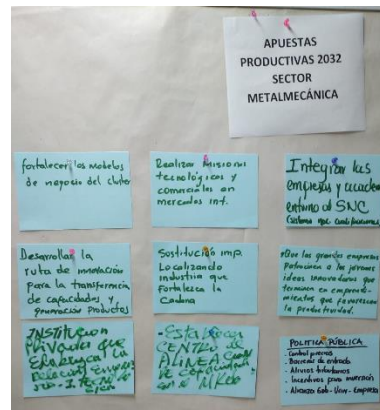 APUESTAS
PRODUCTIVAS 2032
SECTOR
METALMECÁNICA
fortalecer los modelos
de negocio del cluster
Realizar misiones
tecnológicas y
comerciales en
mercados int.
Integrar las
empresas y academ
entorno al SNC
(sistema nac cualificaciones
Desarrollar la
ruta de innovación
para la transferencia
de capacidades y
generación productos
Sustitución imp.
Localizando
industria que
fortalezca la
Cadena
Que las grandes empresas
patrocinen a los jovenes
ideas innovadoras que
terminen en emprendi-
mientos que favorezcan
la productividad.
INSTITUCION
PRIVADA que
la
Relación
- Establecer
CENTRO de
ALINEA
de capacidades
con el MKDO
POLITICA PÚBLICA
- Control precios
- Barreras de entrada
- Alivios tributarios
- Incentivos para inversión
- Alianza Gob - Univ - Empresa